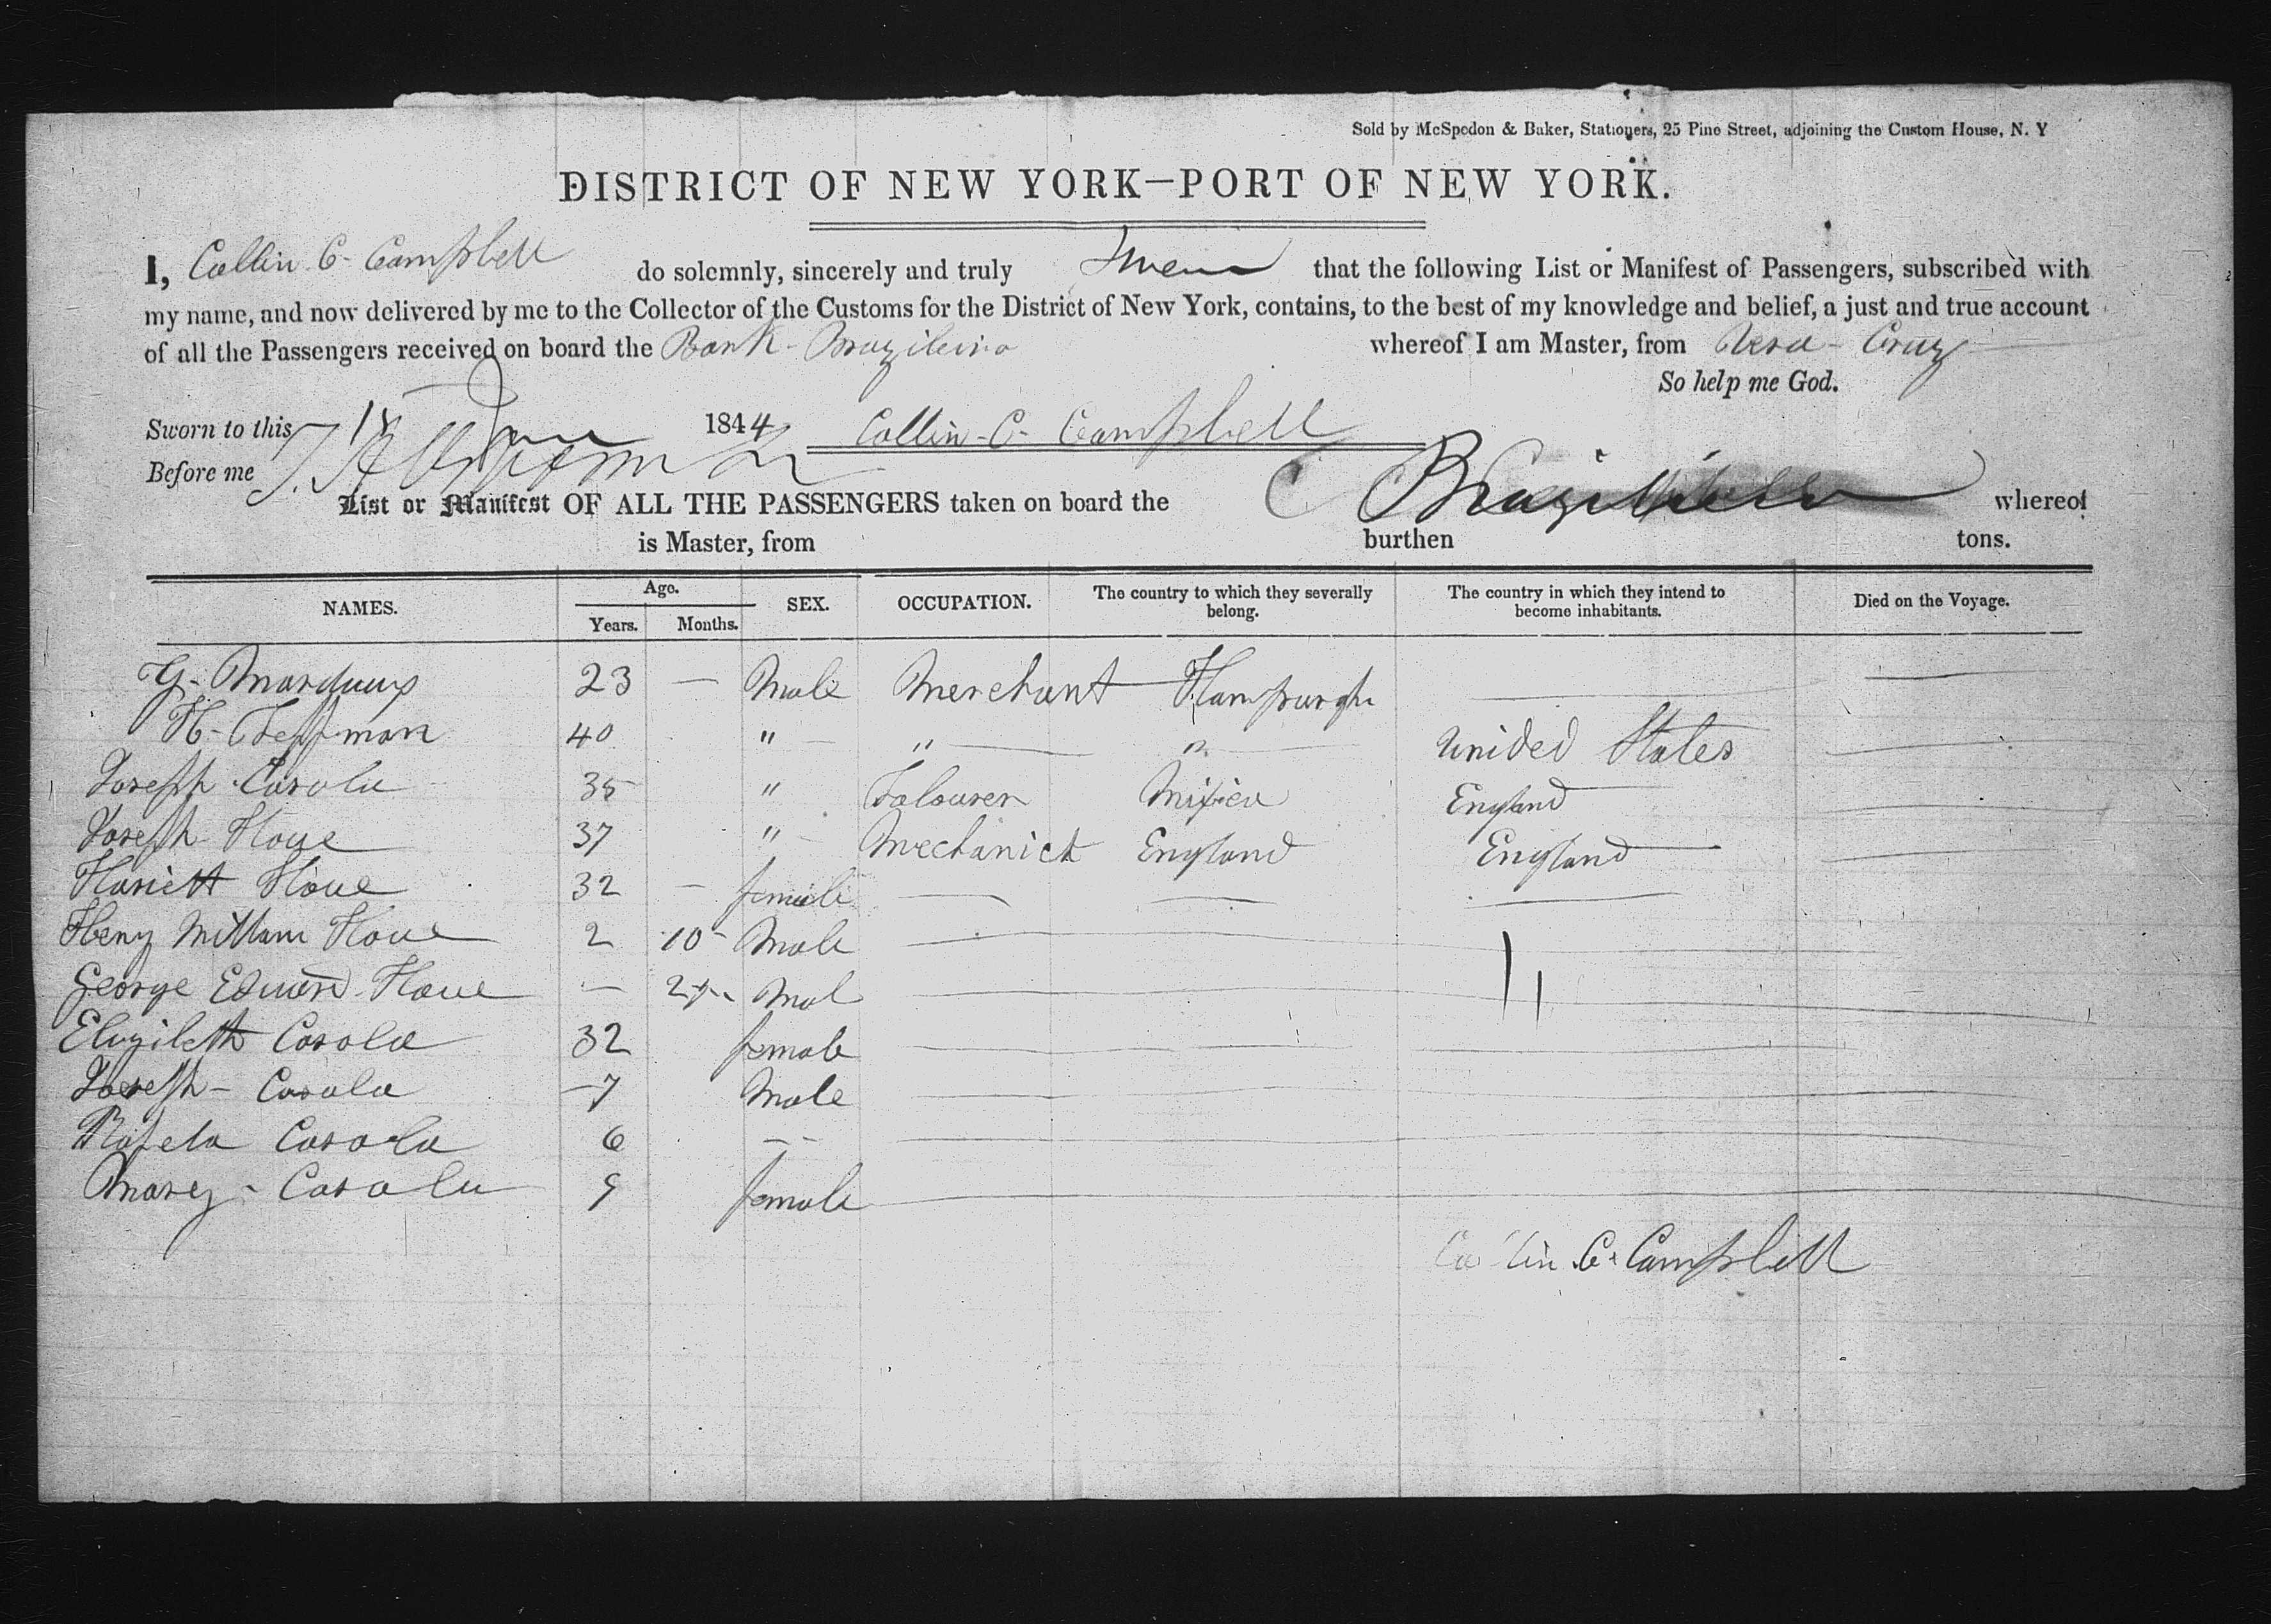 Sold by McSpedon & Baker, Stationers, 25 Pine Street, adjoining the Custom House, N. Y
DISTRICT OF NEW YORK—PORT OF NEW YORK.
I, Collin C. Campbell do solemnly, sincerely and truly Swear that the following List or Manifest of Passengers, subscribed with
my name, and now delivered by me to the Collector of the Customs for the District of New York, contains, to the best of my knowledge and belief, a just and true account
of all the Passengers received on board the Bark Brazileiro whereof I am Master, from Vera Cruz
So help me God.
Sworn to this 18 June 1844 Collin C. Campbell
Before me
List or Manifest OF ALL THE PASSENGERS taken on board the whereof
is Master, from burthen tons.
NAMES. Age. Years. Months. SEX. OCCUPATION. The country to which they severally belong. The country in which they intend to become inhabitants. Died on the Voyage.
G. 23 — Male Merchant Hamburgh
H. 40 " " " United States
Joseph Casola 35 " Labourer England
Joseph Howe 37 " Mechanick England England
Hariett Howe 32 — female
Heny William Howe 2 10 Male
George Edward Howe — Mal
Elizibeth Casola 32 female
Joseph - Casola 7 Male
Rafela Casola 6
Marey - Casola 9 female
Collin C. Campbell